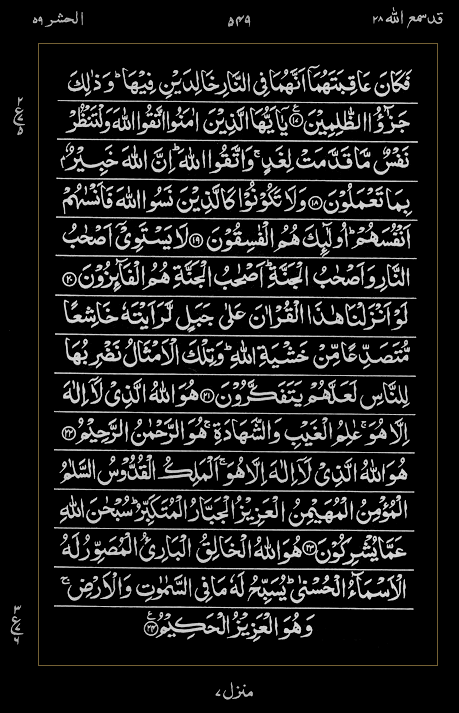 قد سمع الله ۲۸ ۵۴۹ الحشر ۵۹
فَكَانَ عَاقِبَتَهُمَاۤ اَنَّهُمَا فِی النَّارِ خَالِدَیْنِ فِیْهَا ؕ وَ ذٰلِكَ
جَزٰٓؤُا الظّٰلِمِیْنَ ۝۱۷ یٰۤاَیُّهَا الَّذِیْنَ اٰمَنُوا اتَّقُوا اللّٰهَ وَ لْتَنْظُرْ
نَفْسٌ مَّا قَدَّمَتْ لِغَدٍ ۚ وَ اتَّقُوا اللّٰهَ ؕ اِنَّ اللّٰهَ خَبِیْرٌۢ
بِمَا تَعْمَلُوْنَ ۝۱۸ وَ لَا تَكُوْنُوْا كَالَّذِیْنَ نَسُوا اللّٰهَ فَاَنْسٰىهُمْ
اَنْفُسَهُمْ ؕ اُولٰٓىِٕكَ هُمُ الْفٰسِقُوْنَ ۝۱۹ لَا یَسْتَوِیْۤ اَصْحٰبُ
النَّارِ وَ اَصْحٰبُ الْجَنَّةِ ؕ اَصْحٰبُ الْجَنَّةِ هُمُ الْفَآىِٕزُوْنَ ۝۲۰
لَوْ اَنْزَلْنَا هٰذَا الْقُرْاٰنَ عَلٰی جَبَلٍ لَّرَاَیْتَهٗ خَاشِعًا
مُّتَصَدِّعًا مِّنْ خَشْیَةِ اللّٰهِ ؕ وَ تِلْكَ الْاَمْثَالُ نَضْرِبُهَا
لِلنَّاسِ لَعَلَّهُمْ یَتَفَكَّرُوْنَ ۝۲۱ هُوَ اللّٰهُ الَّذِیْ لَاۤ اِلٰهَ
اِلَّا هُوَ ۚ عٰلِمُ الْغَیْبِ وَ الشَّهَادَةِ ۚ هُوَ الرَّحْمٰنُ الرَّحِیْمُ ۝۲۲
هُوَ اللّٰهُ الَّذِیْ لَاۤ اِلٰهَ اِلَّا هُوَ ۚ اَلْمَلِكُ الْقُدُّوْسُ السَّلٰمُ
الْمُؤْمِنُ الْمُهَیْمِنُ الْعَزِیْزُ الْجَبَّارُ الْمُتَكَبِّرُ ؕ سُبْحٰنَ اللّٰهِ
عَمَّا یُشْرِكُوْنَ ۝۲۳ هُوَ اللّٰهُ الْخَالِقُ الْبَارِئُ الْمُصَوِّرُ لَهُ
الْاَسْمَآءُ الْحُسْنٰی ؕ یُسَبِّحُ لَهٗ مَا فِی السَّمٰوٰتِ وَ الْاَرْضِ ۚ
وَ هُوَ الْعَزِیْزُ الْحَكِیْمُ ۝۲۴
منزل ۷